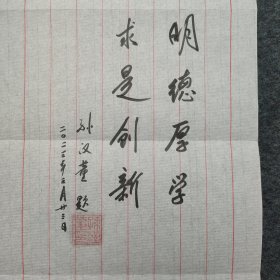 明德厚学
求是创新
孙汉董题
二〇二三年二月廿三日